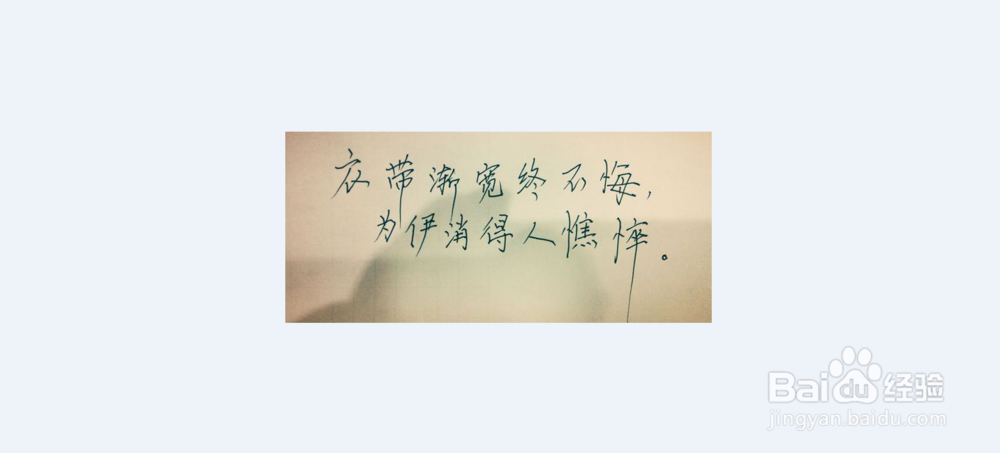 衣带渐宽终不悔,
为伊消得人憔悴。
Baidu经验
jingyan.baidu.com